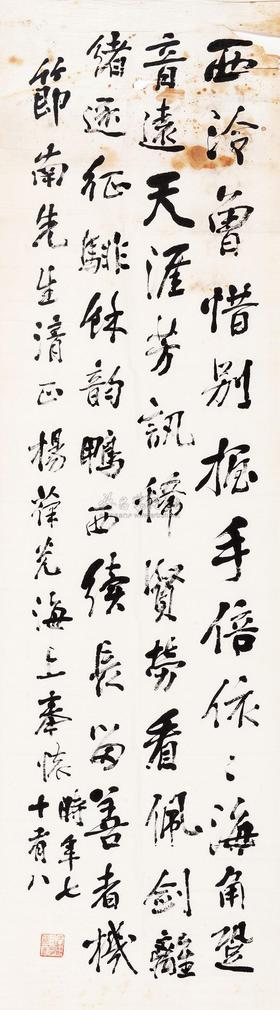 西泠曾惜别握手倍依々海角跫
音遠天涯芳訊稀賢勞看佩劍離
緒逐征騑韵鴨西續長留善者機
節南先生清正楊葆光海上奉懷
時年七
十有八